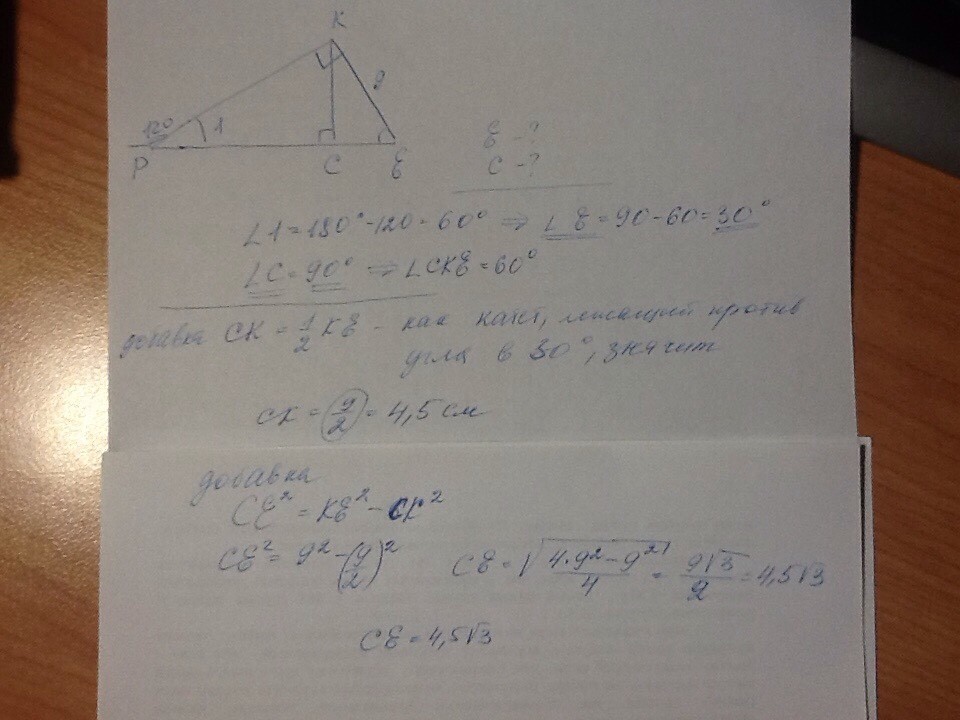 K
120°
1
9
P
C
E
E - ?
C - ?
∠1 = 180° - 120 = 60° ⇒ ∠E = 90 - 60 = 30°
∠C = 90° ⇒ ∠CKE = 60°
добавка CK = 1/2 KE - как катет, лежащий против
угла в 30°, значит
CK = 9/2 = 4,5 см
добавка
CE² = KE² - CK²
CE² = 9² - (9/2)² CE = √(4·9² - 9²)/4 = 9√3/2 = 4,5√3
CE = 4,5√3